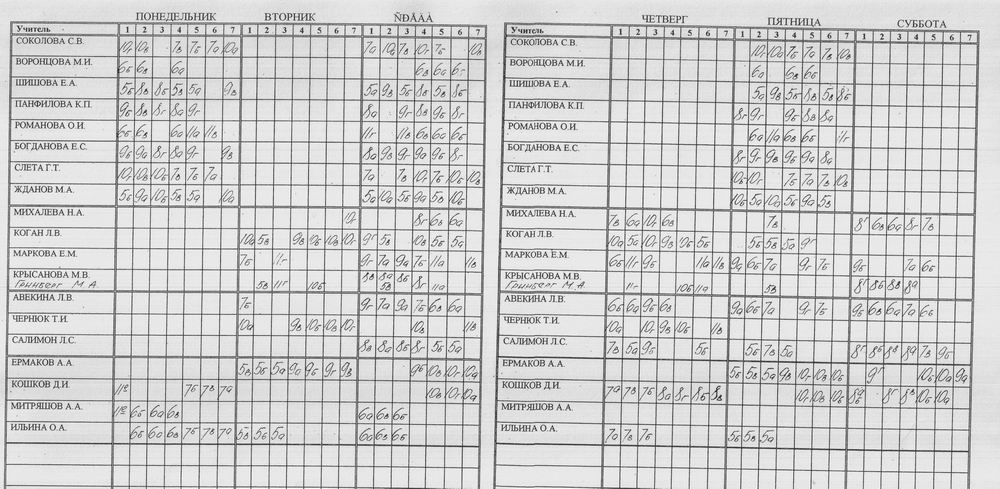 ПОНЕДЕЛЬНИК ВТОРНИК ÑÐÅÄÀ
Учитель 1 2 3 4 5 6 7 1 2 3 4 5 6 7 1 2 3 4 5 6 7
СОКОЛОВА С.В. 10г 10в 7в 7б 7а 10а 7а 7в 10г 7б 10в
ВОРОНЦОВА М.И. 6б 6в 6а 6в 6а 6г
ШИШОВА Е.А. 5б 8в 8б 5в 5а 9в 5а 9в 5б 8в 5в 8б
ПАНФИЛОВА К.П. 9б 8в 8г 8а 9г 8а 9г 8в 9б 8г
РОМАНОВА О.И. 6б 6в 6а 11а 11в 11г 11в 6в 6а 6б
БОГДАНОВА Е.С. 9б 9а 8г 8а 9г 9в 8а 9в 9г 9а 9б 8г
СЛЕТА Г.Т. 10г 10в 10б 7в 7б 7а 7а 7в 10г 7б 10б 10в
ЖДАНОВ М.А. 5б 9а 10б 5в 5а 10а 5а 10а 5б 9а 5в 10б
МИХАЛЕВА Н.А. 10г 8г 6в 6а
КОГАН Л.В. 10а 5в 9в 10б 10в 10г 9г 5в 10в 5б 5а
МАРКОВА Е.М. 7б 11г 9г 7а 9а 7б 11а 11в
КРЫСАНОВА М.В. 8в 8а 8б 8г
Гринберг М.А. 5в 11г 10б 5в 11а
АВЕКИНА Л.В. 7б 9г 7а 9а 7б 6в 6а
ЧЕРНЮК Т.И. 10а 9в 10б 10в 10г 10в 11в
САЛИМОН Л.С. 8в 8а 8б 8г 5б 5а
ЕРМАКОВ А.А. 5в 5б 5а 9а 9б 9г 9в 9б 10в 10г 10а
КОШКОВ Д.И. 11г 7б 7в 7а 10в 10г 10а
МИТРЯШОВ А.А. 11г 6б 6а 6в 6а 6в 6б
ИЛЬИНА О.А. 6б 6а 6в 7б 7в 7а 5в 5б 5а 6а 6в 6б
ЧЕТВЕРГ ПЯТНИЦА СУББОТА
Учитель 1 2 3 4 5 6 7 1 2 3 4 5 6 7 1 2 3 4 5 6 7
СОКОЛОВА С.В. 10г 10а 7б 7а 7в 10в
ВОРОНЦОВА М.И. 6а 6в 6б
ШИШОВА Е.А. 5а 9в 5б 8в 5в 8б
ПАНФИЛОВА К.П. 8г 9г 9б 8в 8а
РОМАНОВА О.И. 6а 11а 6в 6б 11г
БОГДАНОВА Е.С. 8г 9г 9в 9б 9а 8а
СЛЕТА Г.Т. 10б 10г 7б 7а 7в 10в
ЖДАНОВ М.А. 10б 5а 10а 5б 9а 5в
МИХАЛЕВА Н.А. 7в 6а 10г 6в 7в 8г 6в 6а 8г 7в
КОГАН Л.В. 10а 5а 10г 9в 5б 5б 5в 5а 9г
МАРКОВА Е.М. 6б 11г 9б 11а 11в 9а 6б 7а 9г 7б 9б 7а 6б
КРЫСАНОВА М.В. 8г 8б 8в 8а
Гринберг М.А. 11г 10б 11а 5в
АВЕКИНА Л.В. 6б 6а 9б 6в 9а 6б 7а 9г 7б 9б 6в 6а 7а 6б
ЧЕРНЮК Т.И. 10а 10г 9в 10б 11в
САЛИМОН Л.С. 7в 5а 9б 5б 5б 7в 5а 8г 8б 8в 8а 7в 9б
ЕРМАКОВ А.А. 5б 5в 5а 9в 10г 10в 10б 9г 10б 10а 9а
КОШКОВ Д.И. 7а 7в 7б 8а 8г 8б 8в 10г 10в 10б 8г 8в 10б 10а
МИТРЯШОВ А.А.
ИЛЬИНА О.А. 7а 7в 7б 5б 5в 5а